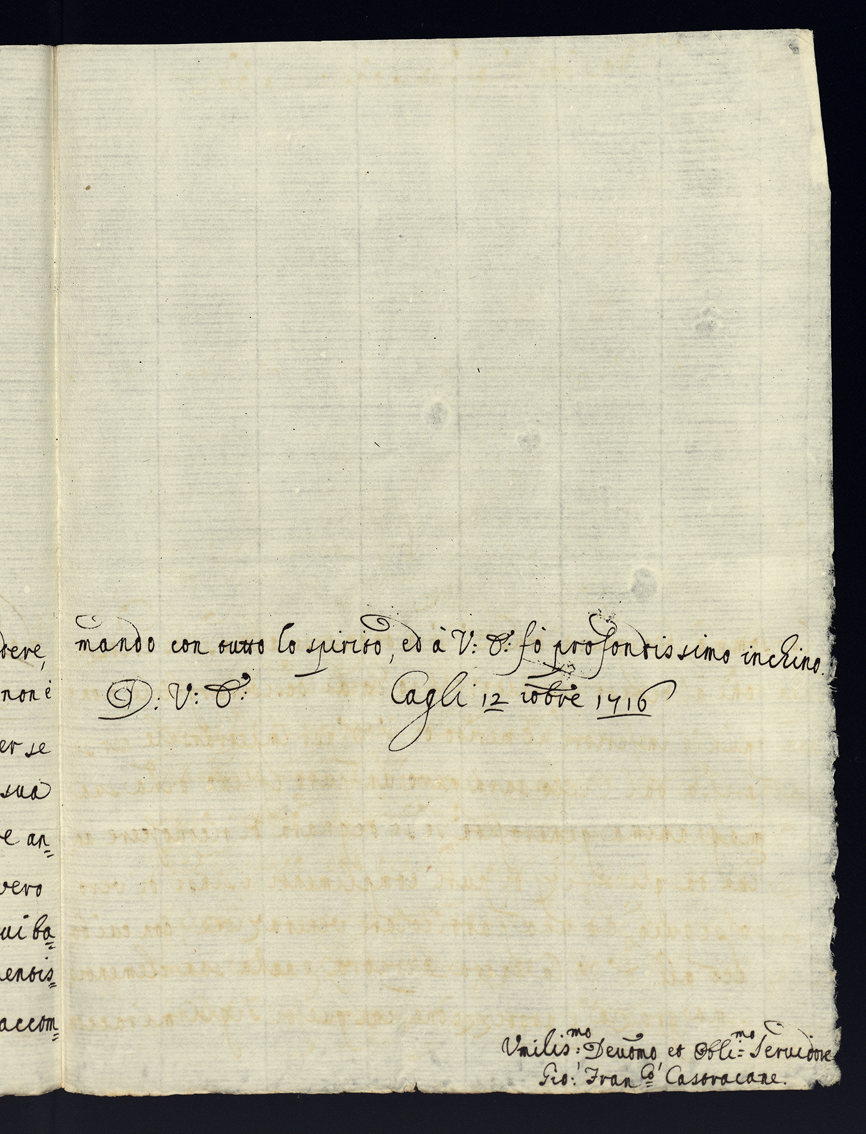 dere,
non è
er se
sua
e an=
vero
ui ba=
entis=
accom=
mando con tutto lo spirito, ed à V: S: fò profondissimo inchino.
D: V: S: Cagli 12 10bre 1716
Vmilis:mo Deuōmo et Obli:mo Seruidore
Gio: Fran:co Castracane.